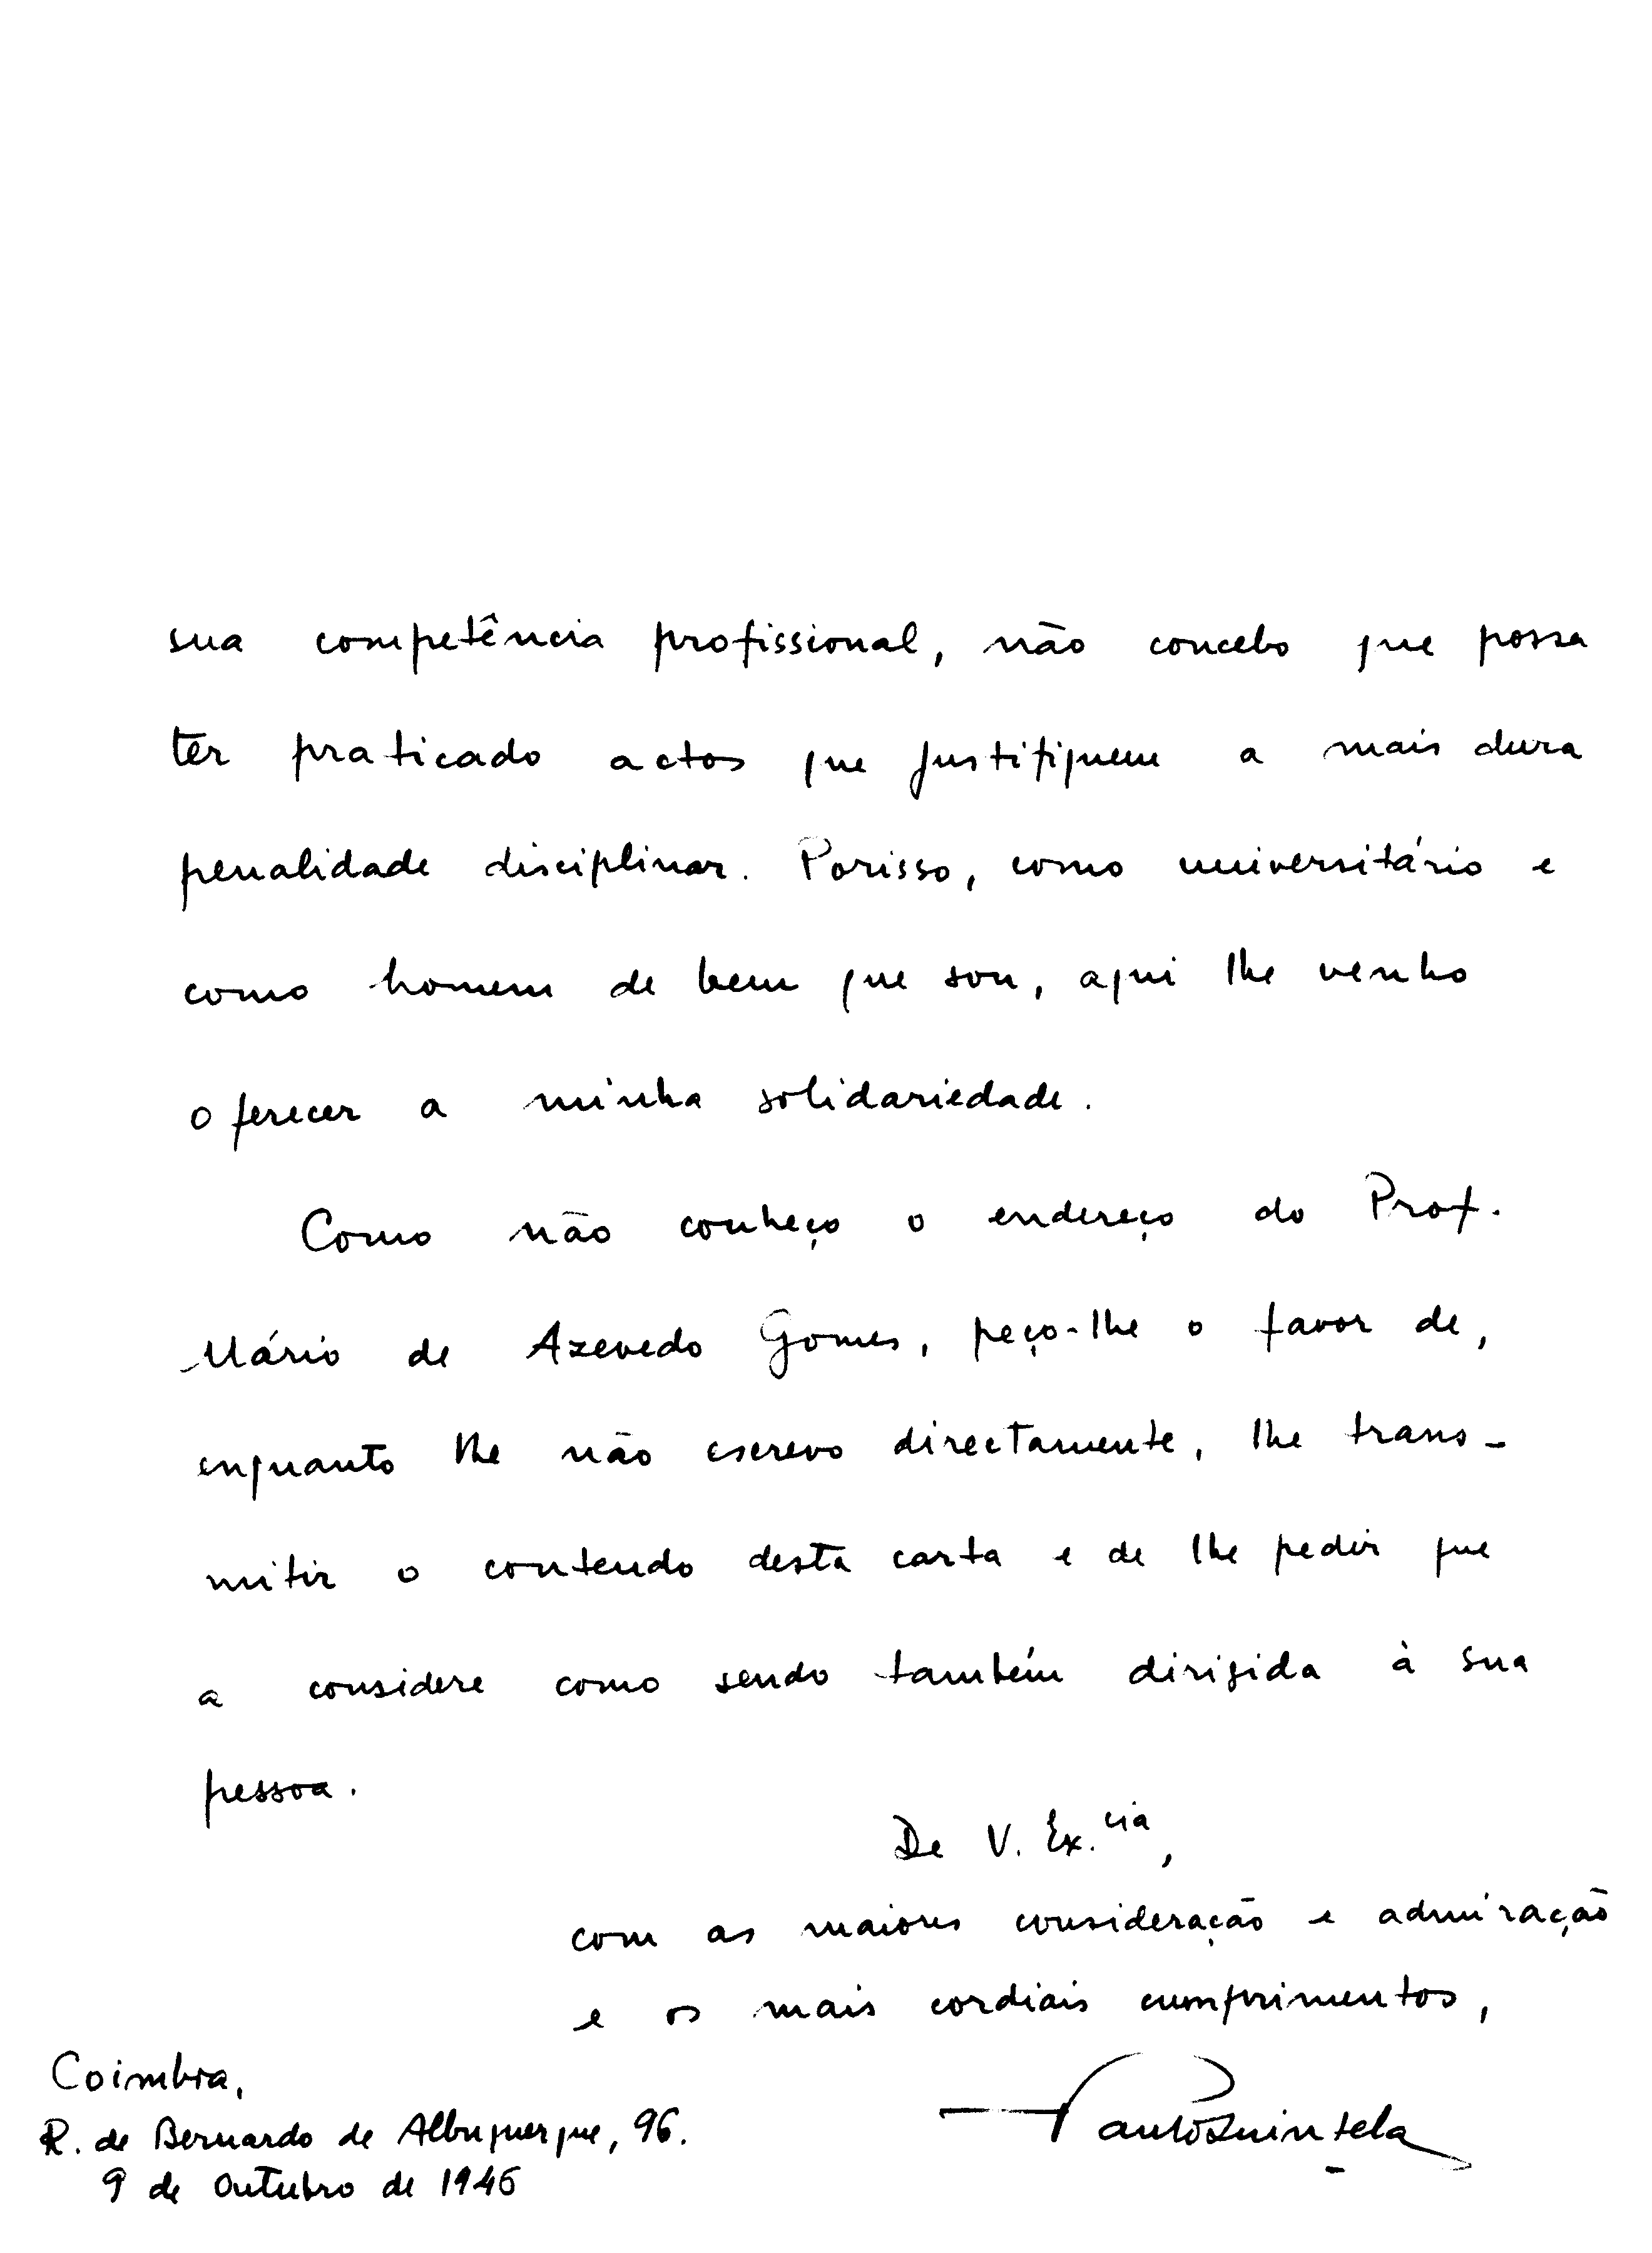 sua competência profissional, não concebo que possa
ter praticado actos que justifiquem a mais dura
penalidade disciplinar. Porisso, como universitário e
como homem de bem que sou, aqui lhe venho
oferecer a minha solidariedade.
Como não conheço o endereço do Prof.
Mário de Azevedo Gomes, peço-lhe o favor de,
enquanto lhe não escrevo directamente, lhe trans-
mitir o conteudo desta carta e de lhe pedir que
a considere como sendo também dirigida à sua
pessoa.
De V. Ex.cia,
com as maiores consideração e admiração
e os mais cordiais cumprimentos,
Paulo Quintela
Coimbra,
R. de Bernardo de Albuquerque, 96.
9 de Outubro de 1946